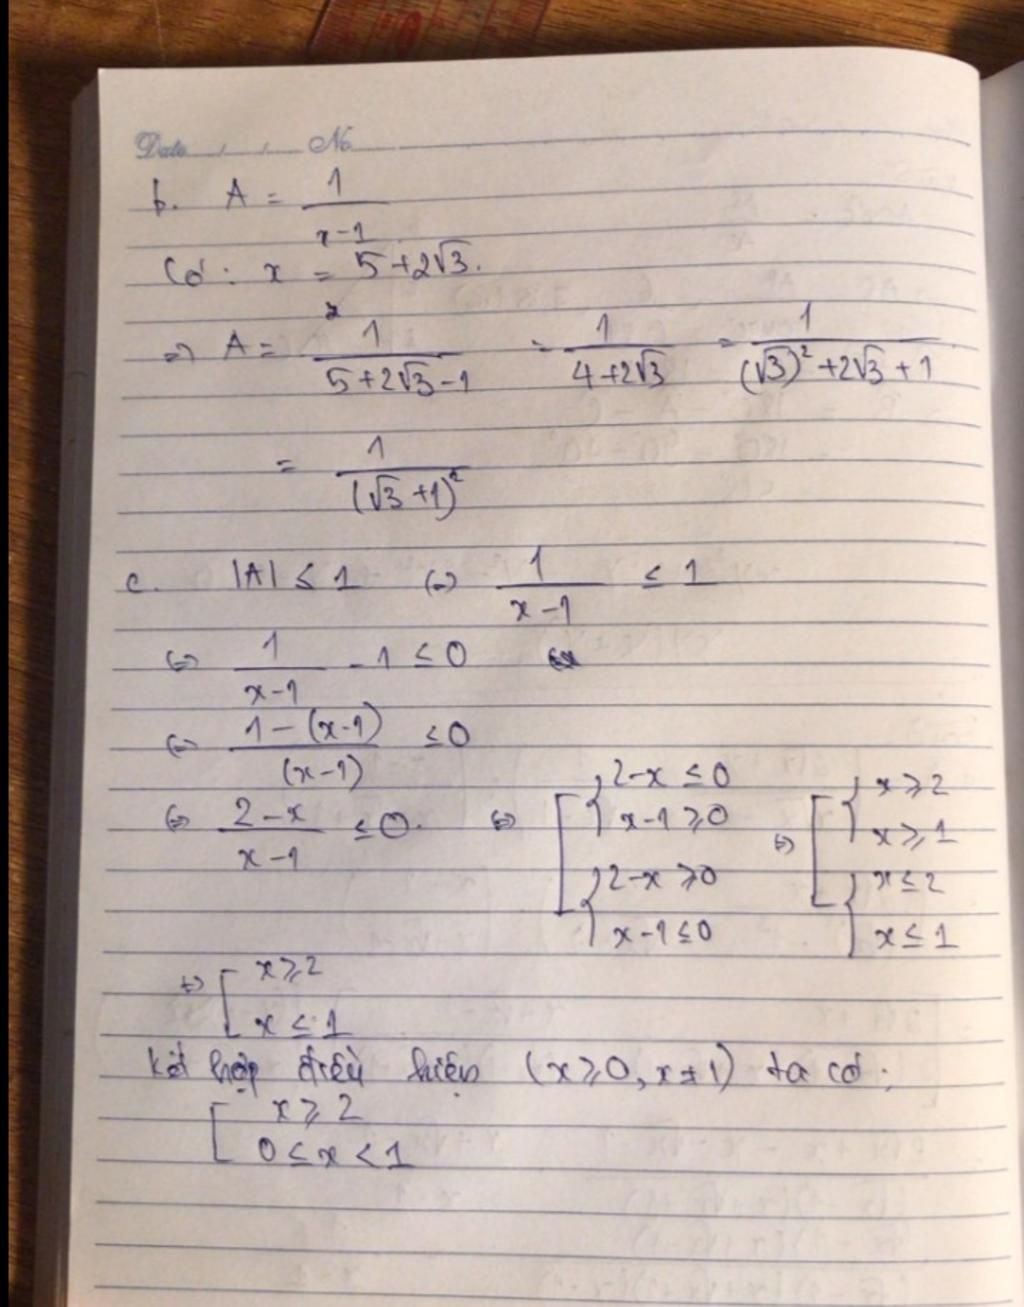 Date . . . No.
b. A = 1/(x-1)
Có: x = 5+2√3.
=> A = 1/(5+2√3-1) = 1/(4+2√3) = 1/((√3)²+2√3+1)
= 1/(√3+1)²
c. |A| ≤ 1 <=> 1/(x-1) ≤ 1
<=> 1/(x-1) - 1 ≤ 0
<=> (1-(x-1))/(x-1) ≤ 0
<=> (2-x)/(x-1) ≤ 0. <=> [ { 2-x ≤ 0 { x-1 ≥ 0 { 2-x ≥ 0 { x-1 ≤ 0 <=> [ { x ≥ 2 { x ≥ 1 { x ≤ 2 { x ≤ 1
<=> [ x ≥ 2
x ≤ 1
Kết hợp điều kiện (x ≥ 0, x ≠ 1) ta có:
[ x ≥ 2
0 ≤ x < 1